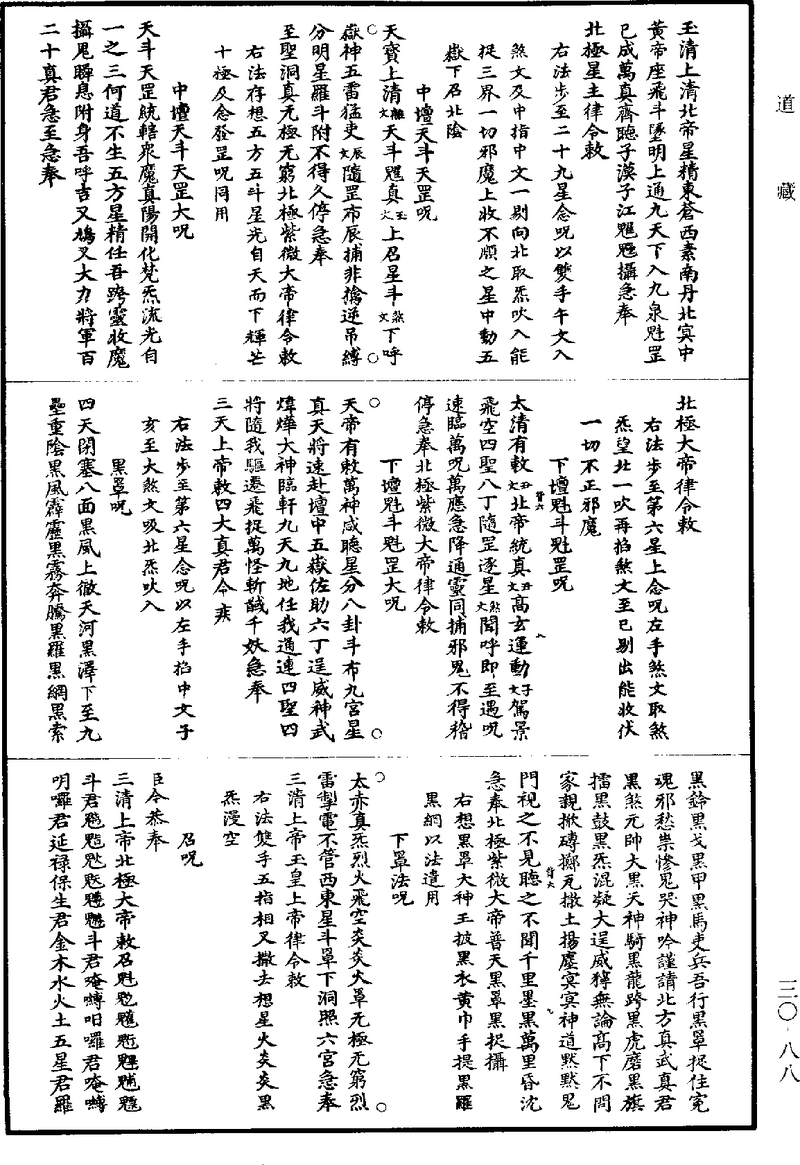 道藏
玉清上清北帝星精東蒼西素南丹北㝠中
黃帝座飛斗墜明上通九天下入九泉魁罡
已成萬真齊聽子漠子江魒魓攝急奉
北極星主律令敕
右法步至二十九星念呪以雙手午文入
煞文及中指中文一剔向北取炁吹入能
捉三界一切邪魔上收不順之星中動五
嶽下召北陰
中壇天斗天罡呪
天寶上清天斗魒真文玉上召星斗文煞下呼
嶽神五雷猛吏文辰隨罡布辰捕非擒逆吊縛
分明星羅斗附不得久停急奉
至聖洞真无極无窮北極紫微大帝律令敕
右法存想五方五斗星光自天而下輝芒
十極及念發罡呪同用
中壇天斗天罡大呪
天斗天罡統轄衆魔真陽開化梵炁流光自
一之三何道不生五方星精任吾跨靈收魔
攝鬼瞬息附身吾呼吉又鳩又大力將軍百
二十真君急至急奉
北極大帝律令敕
右法步至第六星上念呪左手煞文取煞
炁望北一吹再掐煞文至巳剔出能收伏
一切不正邪魔
下壇魁斗魁罡呪
太清有敕文丑北帝統真文丑高玄運動文子駕景
飛空四聖八丁隨罡逐星文煞聞呼即至遇呪
速臨萬呪萬應急降通靈同捕邪鬼不得稽
停急奉北極紫微大帝律令敕
下壇魁斗魁罡大呪
天帝有敕萬神咸聽星分八卦斗布九宮星
真天將速赴壇中五嶽佐助六丁逞威神武
煒燁大神臨軒九天九地任我通連四聖四
將隨我驅遷飛捉萬怪斬馘千妖急奉
三天上帝敕四大真君令疾
右法步至第六星念呪以左手掐中文子
亥至大煞文吸北炁吹入
黑罩呪
四天閉塞八面黑風上徹天河黑澤下至九
壘重陰黑風霹靂黑霧奔騰黑羅黑網黑索
黑鈴黑戈黑甲黑馬吏兵吾行黑罩捉住寃
魂邪愁祟慘鬼哭神吟謹請北方真武真君
黑煞元帥大黑天神騎黑龍跨黑虎磨黑旗
擂黑鼓黑炁混凝大逞威獰無論高下不問
家親掀磚擲瓦撒土揚塵㝠㝠神道默默鬼
門視之不見聽之不聞千里墨黑萬里昏沈
急奉北極紫微大帝普天黑罩黑捉攝
右想黑罩大神王披黑衣黃巾手提黑羅
黑網以法遣用
下罩法呪
太赤真炁烈火飛空炎炎火罩无極无窮烈
雷掣電不管西東星斗罩下洞照六宮急奉
三清上帝玉皇上帝律令敕
右法雙手五指相叉撒去想星火炎炎黑
炁漫空
召呪
臣令恭奉
三清上帝北極大帝敕召
斗君斗君唵㘄呬囉君唵㘄
明囉君延祿保生君金木水火土五星君羅
三〇‧八八